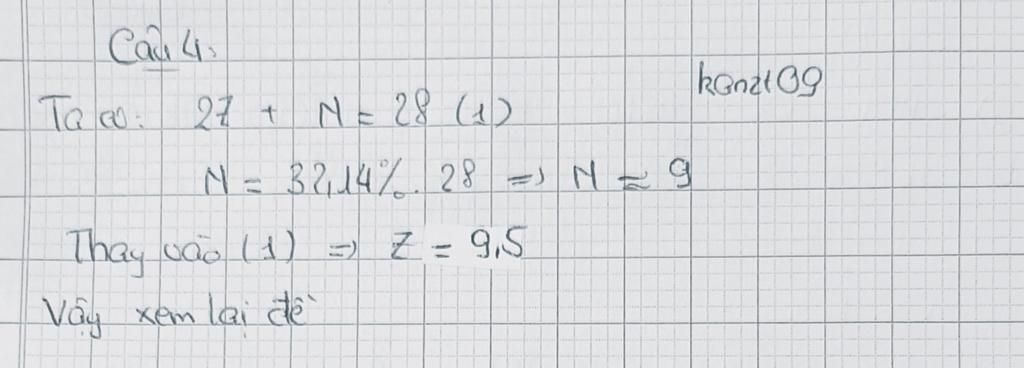 Câu 4:
kanzt09
Ta có: 2Z + N = 28 (1)
N = 32,14%. 28 => N ≈ 9
Thay vào (1) => Z = 9,5
Vậy xem lại đề